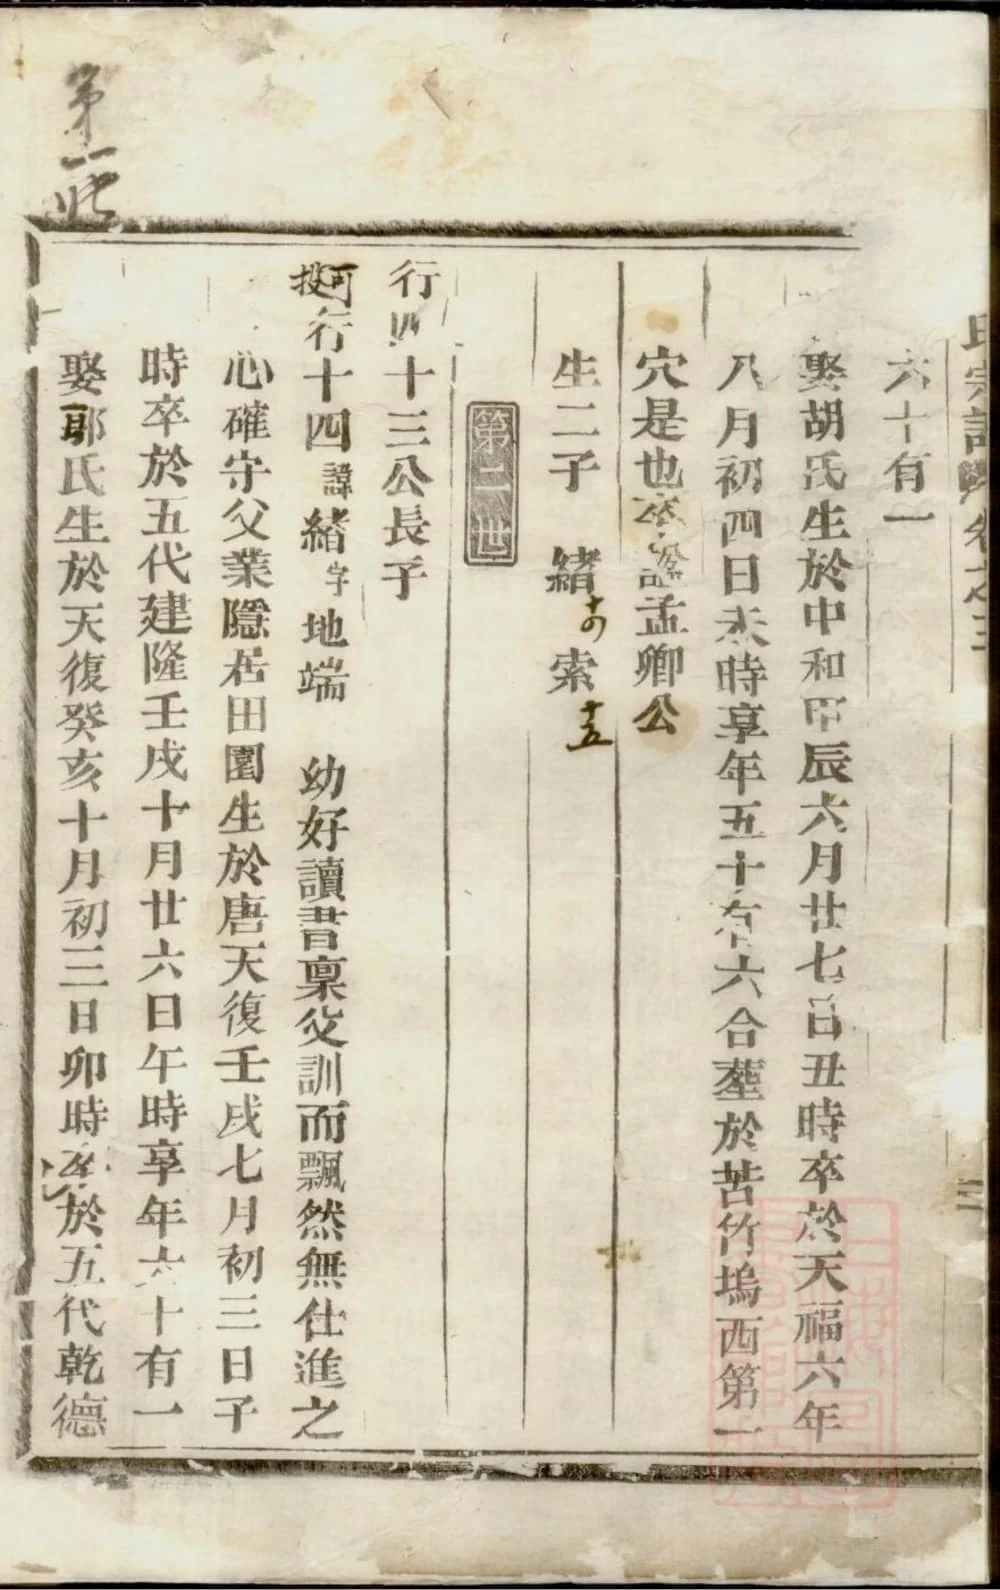 第一
氏宗譜 卷之三
六十有一
娶胡氏生於中和甲辰六月廿七日丑時卒於天福六年
八月初四日未時享年五十有六合塟於苦竹塢西第一
穴是也 孟卿公
生二子 緒 十四 索 十五
第二世
行四十三公長子
行十四 諱緒字地端 幼好讀書稟父訓而飄然無仕進之
心確守父業隱居田園生於唐天復壬戌七月初三日子
時卒於五代建隆壬戌十月廿六日午時享年六十有一
娶郭氏生於天復癸亥十月初三日卯時卒於五代乾德